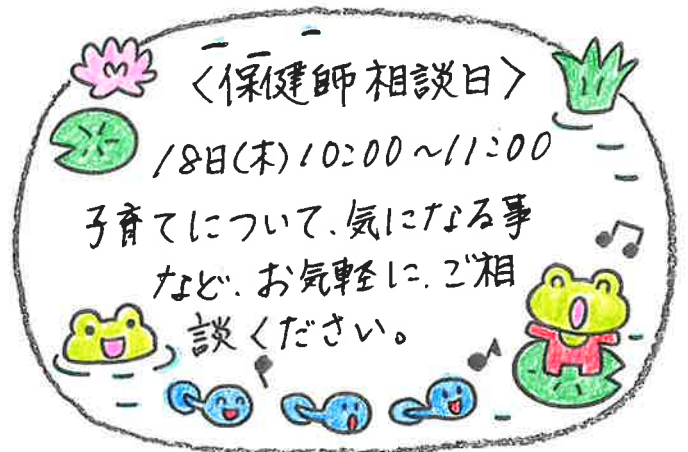 〈保健師相談日〉
18日(木)10:00～11:00
子育てについて、気になる事
など、お気軽に、ご相
談ください。